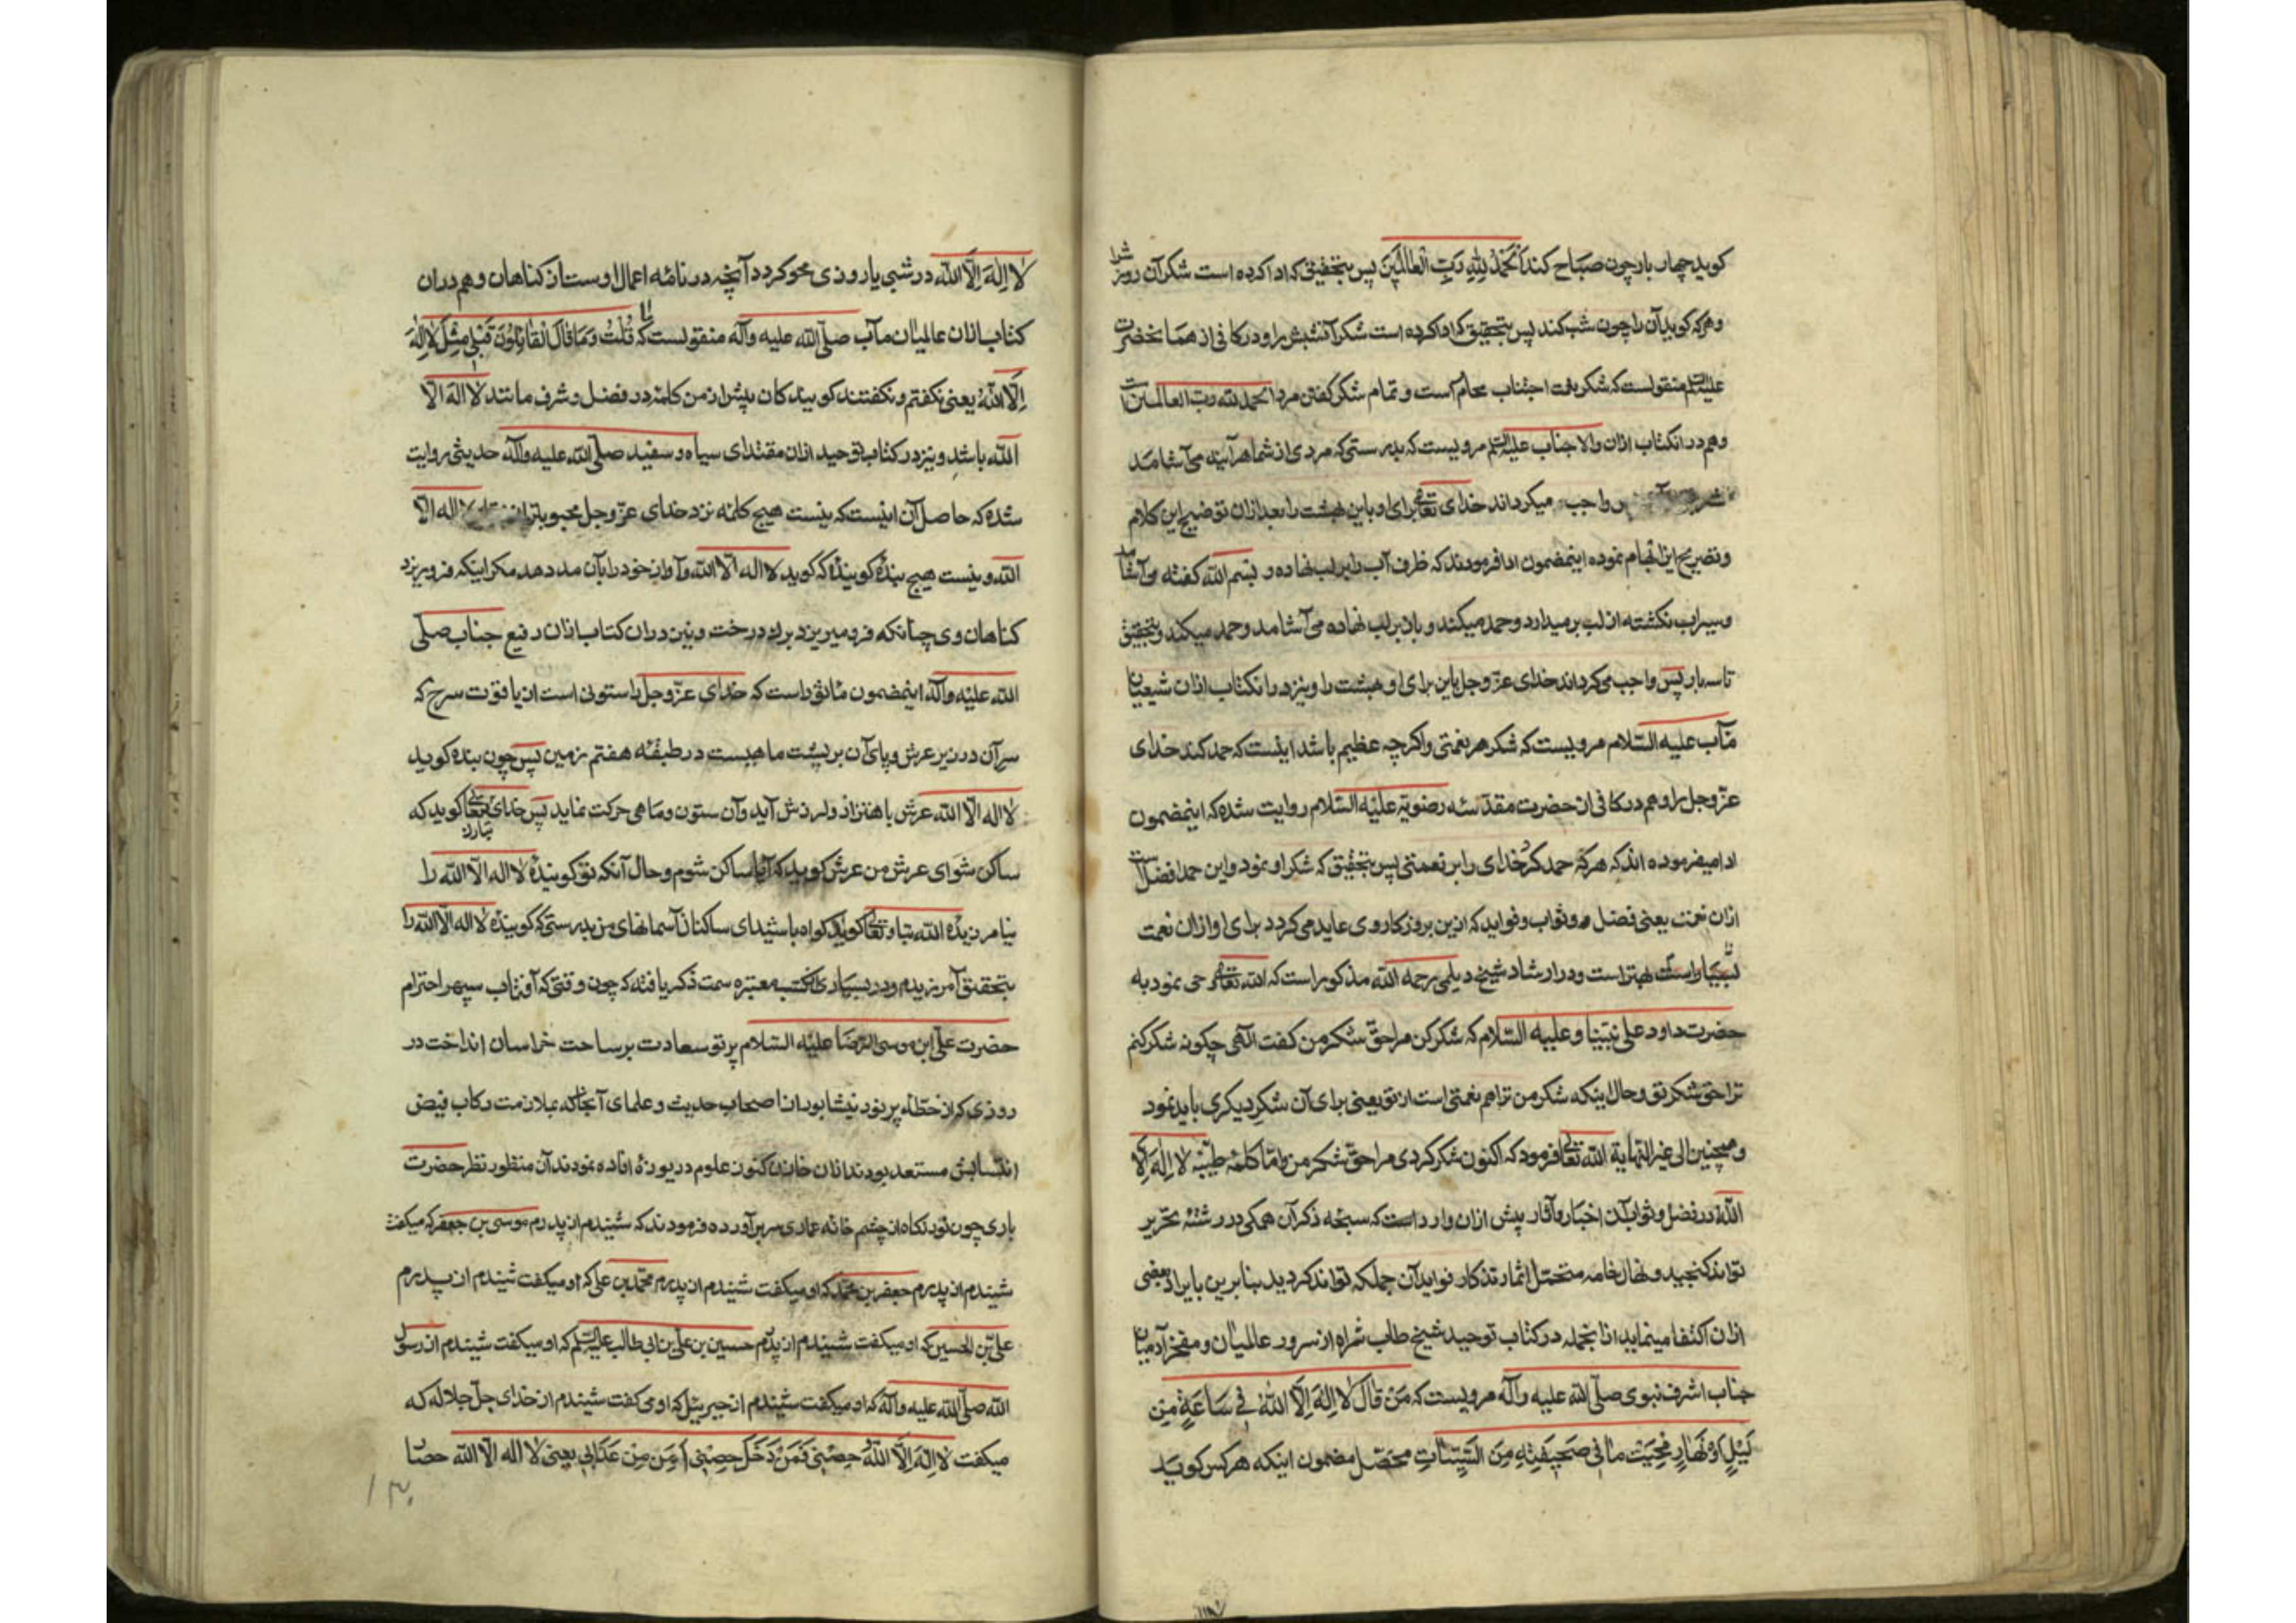 کوید چهار بار چون صباح کند اَلْحَمْدُ لِلّهِ رَبِّ الْعالَمینَ پس بتحقیق که ادا کرده است شکر آن روز را
و هر که کوید آن را چون شب کند پس بتحقیق که ادا کرده است شکر آنشبش را و در کافی از همانحضرت
علیه السلم منقولست که شکر نعمت اجتناب محارم است و تمام شکر کفتن مرد الحمد لله رب العالمین است
و هم در انکتاب ازان والا جناب علیه السلم مرویست که بدرستی که مردی از شما هر آینه می آشامد
واجب میکرداند خدای تعالی برای او باین بهشت را بعد ازان توضیح این کلام
و تصریح این ابهام نموده اینمضمون ادا فرمودند که ظرف آب را بر لب نهاده و بسم الله کفته می آشامد
و سیراب نکشته از لب برمیدارد و حمد میکند و باز بر لب نهاده می آشامد و حمد میکند و بتحقیق
تا سه بار پس واجب می کرداند خدای عز و جل باین برای او بهشت را و نیز در انکتاب ازان شیعیان
مآب علیه السّلام مرویست که شکر هر نعمتی و اکرچه عظیم باشد اینست که حمد کند خدای
عزّ و جل را و هم در کافی از حضرت مقدّسه رضویّه علیه السّلام روایت شده که اینمضمون
ادا میفرموده اند که هر که حمد کرد خدای را بر نعمتی پس بتحقیق که شکر او نمود و این حمد افضل است
ازان نعمت یعنی فضل و ثواب و فواید که ازین بروزکار وی عاید می کردد برای او ازان نعمت
بهتر است و در ارشاد شیخ دیلمی رحمه الله مذکور است که الله تعالی وحی نمود به
حضرت داود علی نبیّنا و علیه السّلام که شکر کن مرا حقّ شکر من کفت الهی چکونه شکر کنم
ترا حق شکر تو و حال اینکه شکر من ترا هم نعمتی است از تو یعنی برای آن شکر دیکری باید نمود
و همچنین الی غیر النّهایة الله تعالی فرمود که اکنون شکر کردی مرا حقّ شکر من و امّا کلمهٔ طیّبهٔ لا اِلهَ اِلاَّ
اللّهُ در فضل و ثواب آن اخبار و آثار بیش ازان وارد است که سبحهٔ ذکر آن همکی در رشتهٔ تحریر
تواند کنجید و نهال خامه متحمّل اثمار تذکار فواید آن جملکه تواند کردید بنابرین بایراد بعضی
ازان اکتفا مینماید ازانجمله در کتاب توحید شیخ طاب ثراه از سرور عالمیان و مفخر آدمیان
جناب اشرف نبوی صلّی الله علیه و آله مرویست که مَنْ قالَ لا اِلهَ اِلاَّ اللّهُ فی ساعَةٍ مِن
لَیْلٍ اَوْ نَهارٍ مُحِیَتْ ما فی صَحیفَتِهِ مِنَ السَّیِّئاتِ محصّل مضمون اینکه هر کس کوید
لا اِلهَ اِلاَّ اللّه در شبی یا روزی محو کردد آنچه در نامهٔ اعمال اوست از کناهان و هم دران
کتاب ازان عالمیان مآب صلّی الله علیه و آله منقولست که ما قُلْتُ وَ ما قالَ الْقائِلُونَ قَبْلی مِثْلَ لا اِلهَ
اِلاَّ اللّهُ یعنی نکفتم و نکفتند کویندکان پیش از من کلمهٔ در فضل و شرف مانند لا اله الا
اللّه باشد و نیز در کتاب توحید ازان مقتدای سیاه و سفید صلّی الله علیه و آله حدیثی روایت
شده که حاصل آن اینست که نیست هیچ کلمه نزد خدای عزّ و جل محبوبتر از لا اله الاّ
الله و نیست هیچ بندهٔ کویندهٔ که کوید لا اله الاّ الله و آواز خود را بآن مد دهد مکر اینکه فرو ریزد
کناهان وی چنانکه فرو میریزد برک درخت و نیز دران کتاب ازان رفیع جناب صلّی
الله علیه و آله اینمضمون ماثور است که خدای عزّ و جل را ستونی است از یاقوت سرخ که
سر آن در زیر عرش و پای آن بر پشت ماهیست در طبقهٔ هفتم زمین پس چون بنده کوید
لا اله الاّ الله عرش باهتزاز و لرزش آید و آن ستون و ماهی حرکت نماید پس خدای تبارک و تعالی کوید که
ساکن شو ای عرش من عرش کوید که آیا ساکن شوم و حال آنکه تو کویندهٔ لا اله الاّ الله را
نیامرزیدهٔ الله تبارک و تعالی کوید کواه باشید ای ساکنان آسمانهای من بدرستی که کویندهٔ لا اله الاّ الله را
بتحقیق آمرزیدم و در بسیاری از کتب معتبره سمت ذکر یافته که چون وقتی که آفتاب سپهر احترام
حضرت علی ابن موسی الرّضا علیه السّلام پرتو سعادت بر ساحت خراسان انداخت در
روزی که از خطّهٔ پر نور نیشابور اصحاب حدیث و علمای آنجا که بملازمت رکاب فیض
انتسابش مستعد بودند ازان خازن کنوز علوم دریوزهٔ افاده نمودند آن منظور نظر حضرت
باری چون نور نکاه از چشم خانهٔ عماری سر برآورده فرمودند که شنیدم از پدرم موسی بن جعفر که میکفت
شنیدم از پدرم جعفر بن محمد که او میکفت شنیدم از پدرم محمّد بن علی که او میکفت شنیدم از پدرم
علی بن الحسین که او میکفت شنیدم از پدرم حسین بن علی بن ابی طالب علیه السلم که او میکفت شنیدم از رسول
الله صلّی الله علیه و آله که او میکفت شنیدم از جبرئیل که او می کفت شنیدم از خدای جلّ جلاله که
میکفت لا اِلهَ اِلاَّ اللّهُ حِصْنی فَمَنْ دَخَلَ حِصْنی اَمِنَ مِنْ عَذابی یعنی لا اله الاّ الله حصار